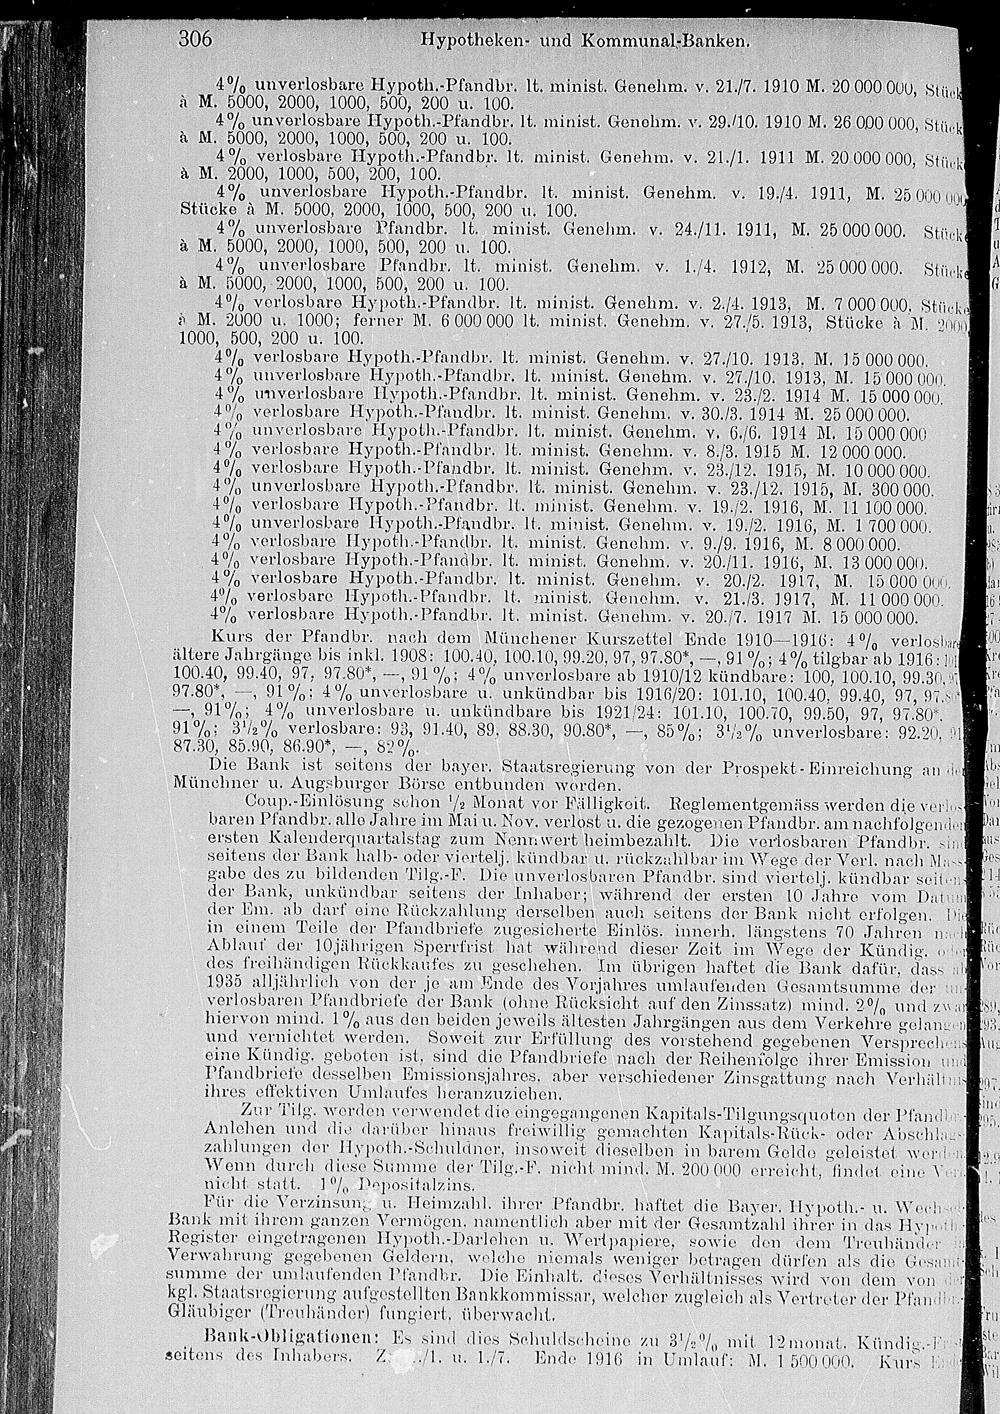 306 Hypotheken- und Kommunal-Banken.
4% unverlosbare Hypoth.-Pfandbr. lt. minist. Genehm. v. 21./7. 1910 M. 20 000 000,
à M. 5000, 2000, 1000, 500, 200 u. 100.
4% unverlosbare Hypoth.-Pfandbr. lt. minist. Genehm. v. 29./10. 1910 M. 26 000 000,
à M. 5000, 2000, 1000, 500, 200 u. 100.
4% verlosbare Hypoth.-Pfandbr. lt. minist. Genehm. v. 21./1. 1911 M. 20 000 000,
à M. 2000, 1000, 500, 200, 100.
4% unverlosbare Hypoth.-Pfandbr. lt. minist. Genehm. v. 19./4. 1911, M. 25 000 000
Stücke à M. 5000, 2000, 1000, 500, 200 u. 100.
4% unverlosbare Pfandbr. lt. minist. Genehm. v. 24./11. 1911, M. 25 000 000.
à M. 5000, 2000, 1000, 500, 200 u. 100.
4% unverlosbare Pfandbr. lt. minist. Genehm. v. 1./4. 1912, M. 25 000 000. Stücke
à M. 5000, 2000, 1000, 500, 200 u. 100.
4% verlosbare Hypoth.-Pfandbr. lt. minist. Genehm. v. 2./4. 1913, M. 7 000 000, Stücke
à M. 2000 u. 1000; ferner M. 6 000 000 lt. minist. Genehm. v. 27./5. 1913, Stücke à M. 2000,
1000, 500, 200 u. 100.
4% verlosbare Hypoth.-Pfandbr. lt. minist. Genehm. v. 27./10. 1913. M. 15 000 000.
4% unverlosbare Hypoth.-Pfandbr. lt. minist. Genehm. v. 27./10. 1913, M. 15 000 000.
4% unverlosbare Hypoth.-Pfandbr. lt. minist. Genehm. v. 23./2. 1914 M. 15 000 000.
4% verlosbare Hypoth.-Pfandbr. lt. minist. Genehm. v. 30./3. 1914 M. 25 000 000.
4% unverlosbare Hypoth.-Pfandbr. lt. minist. Genehm. v. 6./6. 1914 M. 15 000 000
4% verlosbare Hypoth.-Pfandbr. lt. minist. Genehm. v. 8./3. 1915 M. 12 000 000.
4% verlosbare Hypoth.-Pfandbr. lt. minist. Genehm. v. 23./12. 1915, M. 10 000 000.
4% unverlosbare Hypoth.-Pfandbr. lt. minist. Genehm. v. 23./12. 1915, M. 300 000.
4% verlosbare Hypoth.-Pfandbr. lt. minist. Genehm. v. 19./2. 1916, M. 11 100 000.
4% unverlosbare Hypoth.-Pfandbr. lt. minist. Genehm. v. 19./2. 1916, M. 1 700 000.
4% verlosbare Hypoth.-Pfandbr. lt. minist. Genehm. v. 9./9. 1916, M. 8 000 000.
4% verlosbare Hypoth.-Pfandbr. lt. minist. Genehm. v. 20./11. 1916, M. 13 000 000.
4% verlosbare Hypoth.-Pfandbr. lt. minist. Genehm. v. 20./2. 1917, M. 15 000 000.
4% verlosbare Hypoth.-Pfandbr. lt. minist. Genehm. v. 21./3. 1917, M. 11 000 000.
4% verlosbare Hypoth.-Pfandbr. lt. minist. Genehm. v. 20./7. 1917 M. 15 000 000.
Kurs der Pfandbr. nach dem Münchener Kurszettel Ende 1910—1916: 4% verlosbare
ältere Jahrgänge bis inkl. 1908: 100.40, 100.10, 99.20, 97, 97.80*, —, 91%; 4% tilgbar ab 1916:
100.40, 99.40, 97, 97.80*, —, 91%; 4% unverlosbare ab 1910/12 kündbare: 100, 100.10, 99.30,
97.80*, —, 91%; 4% unverlosbare u. unkündbar bis 1916/20: 101.10, 100.40, 99.40, 97, 97.80*
—, 91%; 4% unverlosbare u. unkündbare bis 1921/24: 101.10, 100.70, 99.50, 97, 97.80*.
91%; 3½% verlosbare: 93, 91.40, 89, 88.30, 90.80*, —, 85%; 3½% unverlosbare: 92.20,
87.30, 85.90, 86.90*, —, 82%.
Die Bank ist seitens der bayer. Staatsregierung von der Prospekt-Einreichung an der
Münchner u. Augsburger Börse entbunden worden.
Coup.-Einlösung schon ½ Monat vor Fälligkeit. Reglementgemäss werden die verlos-
baren Pfandbr. alle Jahre im Mai u. Nov. verlost u. die gezogenen Pfandbr. am nachfolgenden
ersten Kalenderquartalstag zum Nennwert heimbezahlt. Die verlosbaren Pfandbr. sind
seitens der Bank halb- oder viertelj. kündbar u. rückzahlbar im Wege der Verl. nach Mass-
gabe des zu bildenden Tilg.-F. Die unverlosbaren Pfandbr. sind viertelj. kündbar seitens
der Bank, unkündbar seitens der Inhaber; während der ersten 10 Jahre vom Datum
der Em. ab darf eine Rückzahlung derselben auch seitens der Bank nicht erfolgen. Die
in einem Teile der Pfandbriefe zugesicherte Einlös. innerh. längstens 70 Jahren nach
Ablauf der 10jährigen Sperrfrist hat während dieser Zeit im Wege der Kündig. oder
des freihändigen Rückkaufes zu geschehen. Im übrigen haftet die Bank dafür, dass ab
1935 alljährlich von der je am Ende des Vorjahres umlaufenden Gesamtsumme der un-
verlosbaren Pfandbriefe der Bank (ohne Rücksicht auf den Zinssatz) mind. 2% und zwar
hiervon mind. 1% aus den beiden jeweils ältesten Jahrgängen aus dem Verkehre gelangen
und vernichtet werden. Soweit zur Erfüllung des vorstehend gegebenen Versprechens
eine Kündig. geboten ist, sind die Pfandbriefe nach der Reihenfolge ihrer Emission und
Pfandbriefe desselben Emissionsjahres, aber verschiedener Zinsgattung nach Verhältnis
ihres effektiven Umlaufes heranzuziehen.
Zur Tilg. werden verwendet die eingegangenen Kapitals-Tilgungsquoten der Pfandbr.-
Anlehen und die darüber hinaus freiwillig gemachten Kapitals-Rück- oder Abschlag-
zahlungen der Hypoth.-Schuldner, insoweit dieselben in barem Gelde geleistet werden.
Wenn durch diese Summe der Tilg.-F. nicht mind. M. 200 000 erreicht, findet eine Verl.
nicht statt. 1% Depositalzins.
Für die Verzinsung u. Heimzahl. ihrer Pfandbr. haftet die Bayer. Hypoth.- u. Wechsel-
Bank mit ihrem ganzen Vermögen, namentlich aber mit der Gesamtzahl ihrer in das Hypoth.-
Register eingetragenen Hypoth.-Darlehen u. Wertpapiere, sowie den dem Treuhänder in
Verwahrung gegebenen Geldern, welche niemals weniger betragen dürfen als die Gesamt-
summe der umlaufenden Pfandbr. Die Einhalt. dieses Verhältnisses wird von dem von der
kgl. Staatsregierung aufgestellten Bankkommissar, welcher zugleich als Vertreter der Pfandbr.-
Gläubiger (Treuhänder) fungiert, überwacht.
Bank-Obligationen: Es sind dies Schuldscheine zu 3½% mit 12monat. Kündig.-Frist
seitens des Inhabers. /1. u. 1./7. Ende 1916 in Umlauf: M. 1 500 000. Kurs